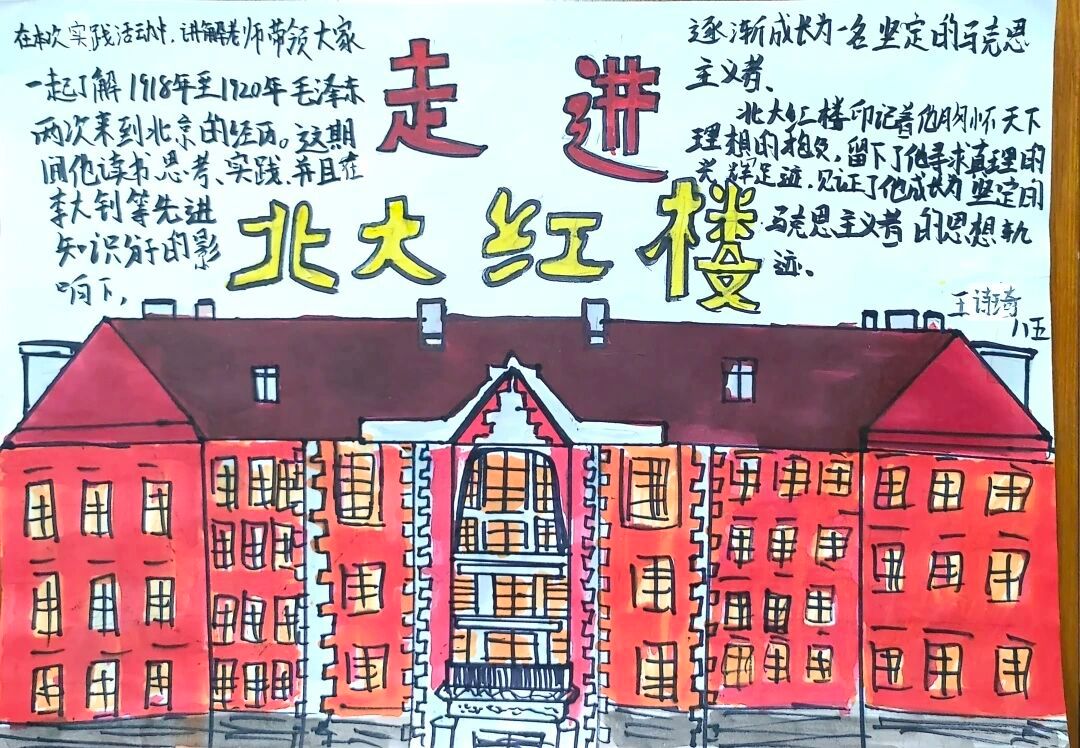 走进
北大红楼
在本次实践活动中，讲解老师带领大家
一起了解1918年至1920年毛泽东
两次来到北京的经历。这期
间他读书、思考、实践，并且在
李大钊等先进
知识分子的影
响下，
逐渐成长为一名坚定的马克思
主义者。
北大红楼印记着他胸怀天下
理想的抱负，留下了他寻求真理的
光辉足迹，见证了他成长为坚定的
马克思主义者的思想轨
迹。
王诗琦
八五